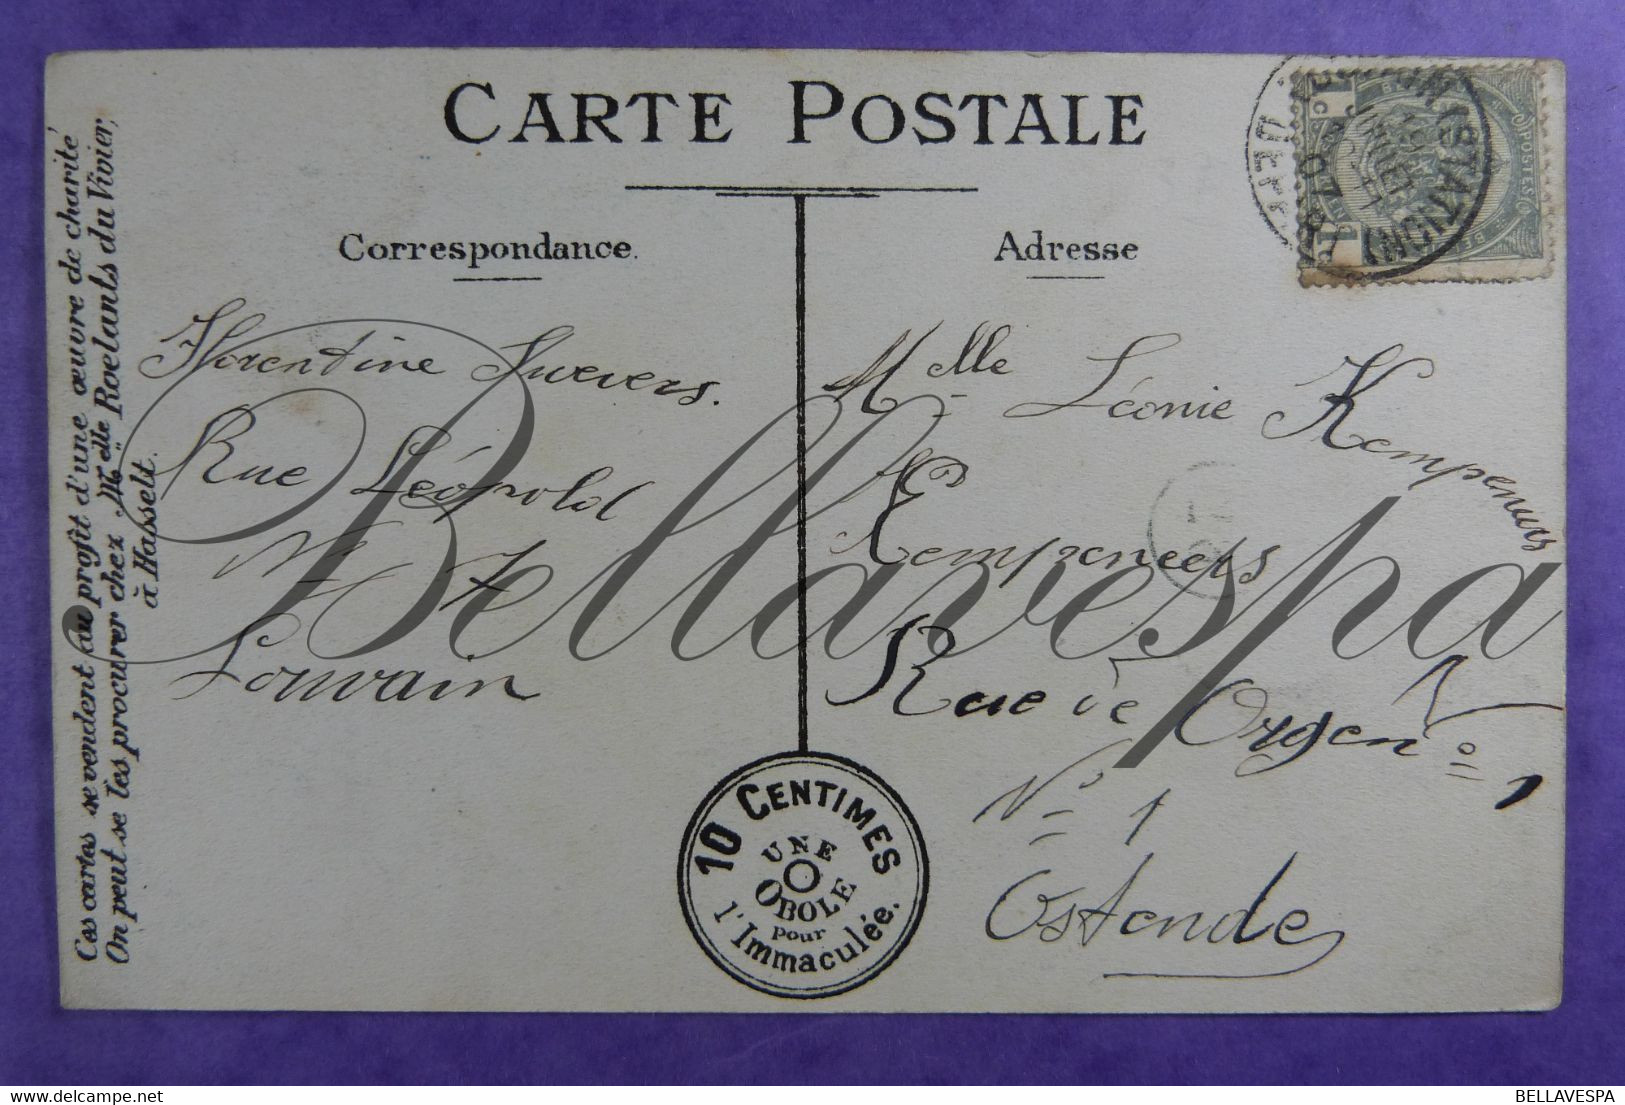 CARTE POSTALE
Correspondance.
Adresse
Ces cartes se vendent au profit d'une œuvre de charité
On peut se les procurer chez Melle Roelants du Vivier,
à Hasselt.
Florentine Swevers.
Rue Léopold
No 7
Louvain
Melle Léonie Kempeneers
Kempeneers
Rue de
No 1
Ostende
10 CENTIMES
UNE
OBOLE
pour
l'Immaculée.
POSTES
(STATION)
DEPART
07
Bellavespa
delcampe.net
BELLAVESPA